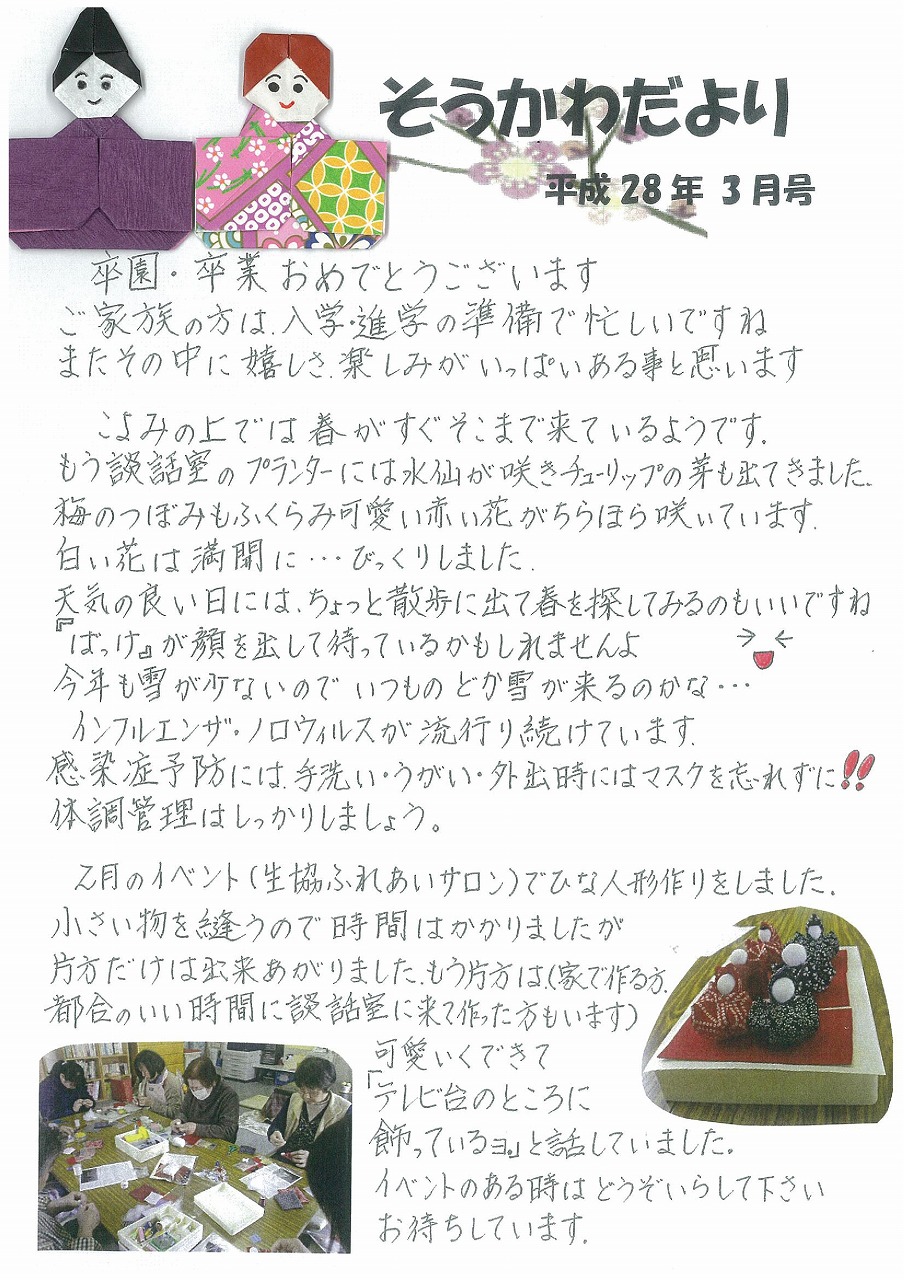 そうかわだより
平成28年 3月号
卒園・卒業おめでとうございます
ご家族の方は、入学・進学の準備で忙しいですね
またその中に嬉しさ、楽しみがいっぱいある事と思います
こよみの上では春がすぐそこまで来ているようです。
もう談話室のプランターには水仙が咲きチューリップの芽も出てきました。
梅のつぼみもふくらみ可愛い赤い花がちらほら咲いています。
白い花は満開に…びっくりしました。
天気の良い日には、ちょっと散歩に出て春を探してみるのもいいですね
『ばっけ』が顔を出して待っているかもしれませんよ
今年も雪が少ないのでいつものどか雪が来るのかな…
インフルエンザ・ノロウィルスが流行り続けています。
感染症予防には、手洗い・うがい・外出時にはマスクを忘れずに!!
体調管理はしっかりしましょう。
2月のイベント(生協ふれあいサロン)でひな人形作りをしました。
小さい物を縫うので時間はかかりましたが
片方だけは出来あがりました。もう片方は(家で作る方、
都合のいい時間に談話室に来て作った方もいます)
可愛いくできて
「テレビ台のところに
飾っているヨ。」と話していました。
イベントのある時はどうぞいらして下さい
お待ちしています。